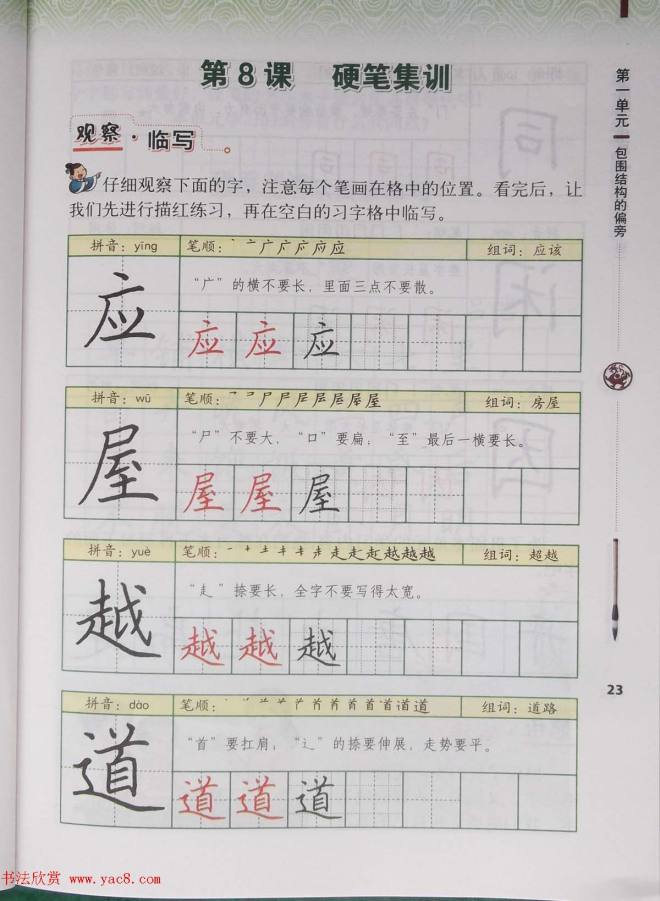 第8课 硬笔集训
观察·临写
仔细观察下面的字，注意每个笔画在格中的位置。看完后，让
我们先进行描红练习，再在空白的习字格中临写。
拼音：yīng 笔顺： 组词：应该
应
“广”的横不要长，里面三点不要散。
应 应 应
拼音：wū 笔顺： 组词：房屋
屋
“尸”不要大，“口”要扁；“至”最后一横要长。
屋 屋 屋
拼音：yuè 笔顺： 组词：超越
越
“走”捺要长，全字不要写得太宽。
越 越 越
拼音：dào 笔顺： 组词：道路
道
“首”要扛肩，“辶”的捺要伸展，走势要平。
道 道 道
第一单元 包围结构的偏旁
23
书法欣赏 www.yac8.com